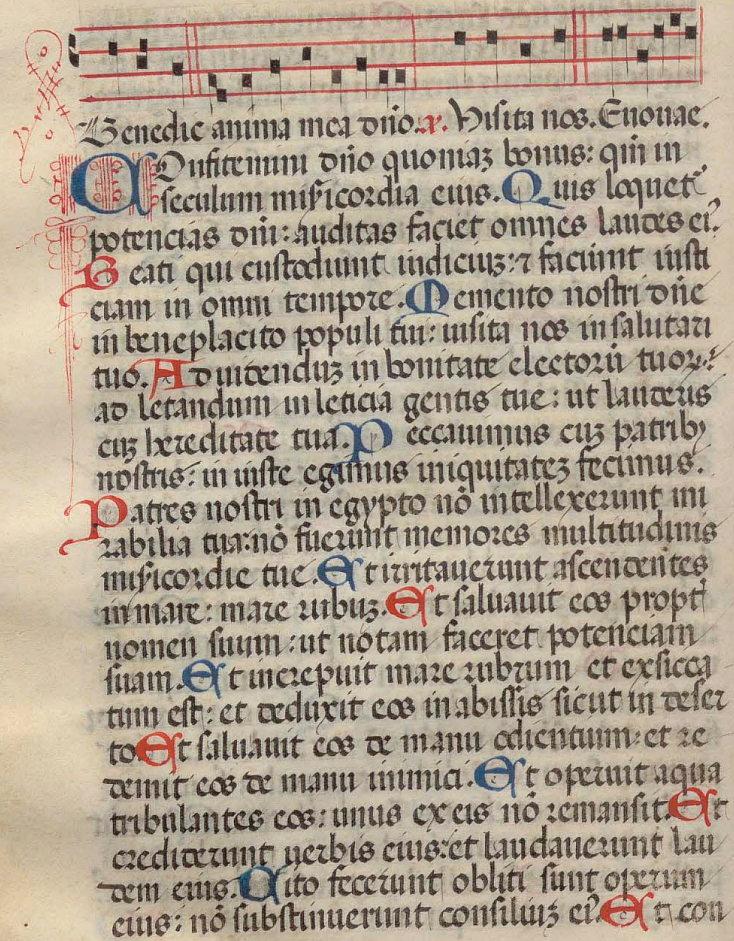 Benedic anima mea dño. ℣. Visita nos. Euouae.
Confitemini dño quoniaꝫ bonus: qm̃ in
seculum mis̃icordia eius. Quis loquet᷑
potencias dñi: auditas faciet omnes laudes ei᷒.
Beati qui custodiunt iudiciuꝫ: ⁊ faciunt iusti
ciam in omni tempore. Memento nostri dñe
in beneplacito populi tui: uisita nos in salutari
tuo. Ad uidenduꝫ in bonitate electorũ tuoꝝ:
ad letandum in leticia gentis tue: ut lauderis
cuꝫ hereditate tua. Peccauimus cuꝫ patribꝫ
nostris: in iuste egimus iniquitateꝫ fecimus.
Patres nostri in egypto nõ intellexerunt mi
rabilia tua: nõ fuerunt memores multitudinis
mis̃icordie tue. Et irritauerunt ascendentes
in mare: mare rubuꝫ. Et saluauit eos propt᷑
nomen suum: ut notam faceret potenciam
suam. Et increpuit mare rubrum et exsicca
tum est: et deduxit eos in abissis sicut in deser
to. Et saluauit eos de manu odientium: et re
demit eos de manu inimici. Et operuit aqua
tribulantes eos: unus ex eis nõ remansit. Et
crediderunt uerbis eius: et laudauerunt lau
dem eius. Cito fecerunt obliti sunt operum
eius: nõ substinuerunt consiliuꝫ ei᷒. Et con